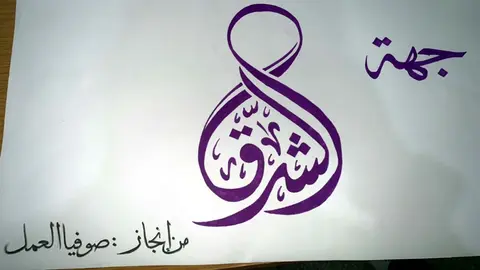 جهة
الشرق
من إنجاز : صوفيا العمل